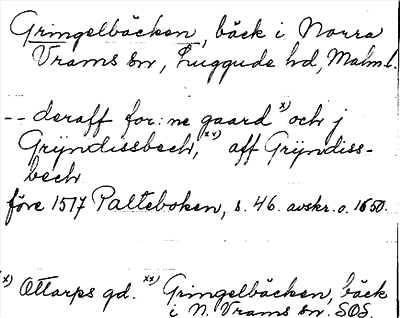 Gringelbäcken, bäck i Norra
Vrams sn, Luggude hd, Malm.l.
-- deraff for:ne gaard x) och j
Gryndissbech, xx) aff Gryndiss-
bech
före 1517 Palteboken, s. 46. avskr. o. 1650.
x) Ottarps gd. xx) Gringelbäcken, bäck
i N. Vrams sn. SOS.